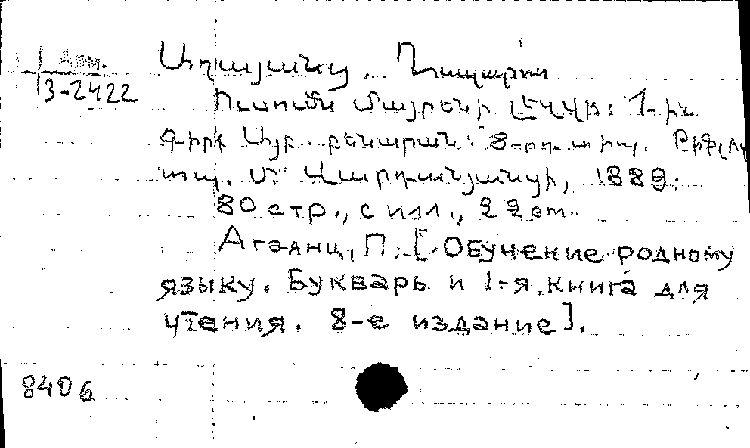 Арм.
3-2422
Աղայանց, Ղազարոս
Ուսումն մայրենի լեզվի: 1-ին
գիրք Այբ-բենարան: 8-րդ տիպ. Թիֆլիս
տպ. Մ. Վարդանյանցի, 1889.
80 стр., с илл., 22 cm.
Агаянц, П. [Обучение родному
языку. Букварь и 1-я книга для
чтения. 8-е издание].
8406